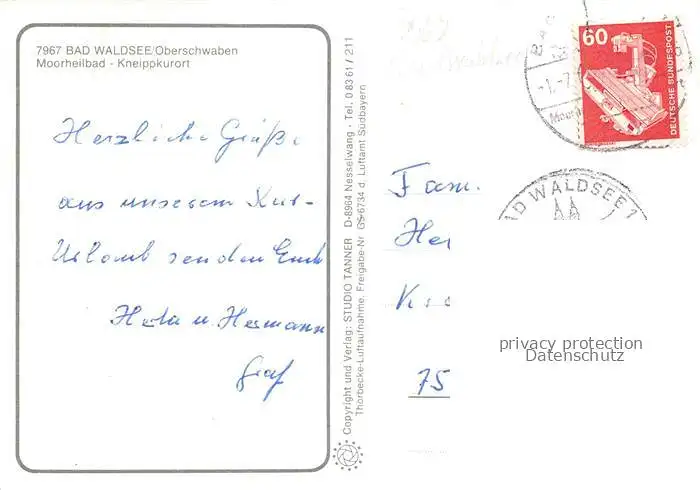 7967 BAD WALDSEE/Oberschwaben
Moorheilbad - Kneippkurort
Herzliche Grüße
aus unserem Kur-
Urlaub senden Euch
Herta u. Hermann
Graf
Copyright und Verlag: STUDIO TANNER D-8964 Nesselwang · Tel. 0 83 61 / 211
Thorbecke-Luftaufnahme, Freigabe-Nr GS 6734 d. Luftamt Südbayern
60
DEUTSCHE BUNDESPOST
BAD WALDSEE 1
Fam.
Her
75
privacy protection
Datenschutz